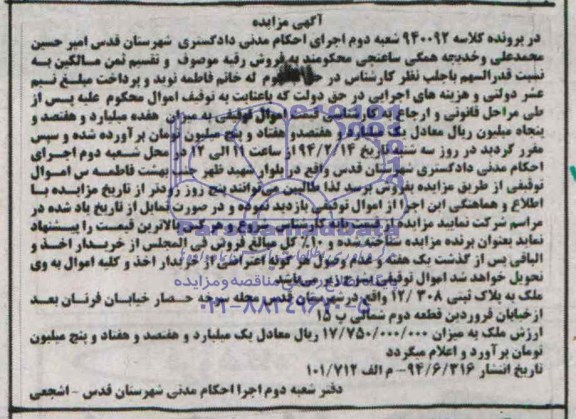 آگهی مزایده
در پرونده کلاسه ۹۴۰۰۹۲ شعبه دوم اجرای احکام مدنی دادگستری شهرستان قدس امیر حسین
محمدعلی وخدیجه همگی ساعتچی محکومند به فروش رقبه موصوف و تقسیم ثمن مالکین به
نسبت قدرالسهم باجلب نظر کارشناس در حق محکوم له خانم فاطمه نوید و پرداخت مبلغ نیم
عشر دولتی و هزینه های اجرایی در حق دولت که باعنایت به توقیف اموال محکوم علیه پس از
طی مراحل قانونی و ارجاع به کارشناسی قیمت اموال توقیفی به میزان هفده میلیارد و هفتصد و
پنجاه میلیون ریال معادل یک میلیارد و هفتصدو هفتاد و پنج میلیون تومان برآورده شده و سپس
مقرر گردید در روز سه شنبه تاریخ ۹۴/۲/۱۴ از ساعت ۱۱ الی ۱۲ در محل شعبه دوم اجرای
احکام مدنی دادگستری شهرستان قدس واقع در بلوار شهید ظهر جنب بهشت فاطمه س اموال
توقیفی از طریق مزایده بفروش برسد لذا طالبین می‌توانند پنج روز زودتر از تاریخ مزایده با
اطلاع و هماهنگی این اجرا از اموال توقیفی بازدید نموده و در صورت تمایل از تاریخ یاد شده در
مراسم شرکت نمایید مزایده از قیمت پایه کارشناس شروع و هرکس بالاترین قیمت را پیشنهاد
نماید بعنوان برنده مزایده شناخته شده و ۱۰٪ کل مبالغ فروش فی المجلس از خریدار اخذ و
الباقی پس از گذشت یک هفته و عدم وصول هر گونه اعتراضی از خریدار اخذ و کلیه اموال به وی
تحویل خواهد شد اموال توقیفی بشرح زیر می‌باشد
ملک به پلاک ثبتی ۳۰۸ /۱۲ واقع در شهرستان قدس محله سرخه حصار خیابان فرنان بعد
از خیابان فروردین قطعه دوم شمالی پ ۱۵
ارزش ملک به میزان ۱۷/۷۵۰/۰۰۰/۰۰۰ ریال معادل یک میلیارد و هفتصد و هفتاد و پنج میلیون
تومان برآورد و اعلام میگردد
تاریخ انتشار ۹۴/۶/۳۱۶- م الف ۱۰۱/۷۱۲
دفتر شعبه دوم اجرا احکام مدنی شهرستان قدس - اشجعی
ParsNamadData
پایگاه اطلاع رسانی مناقصه و مزایده
۰۲۱-۸۸۳۴۹۶۷۰-۵